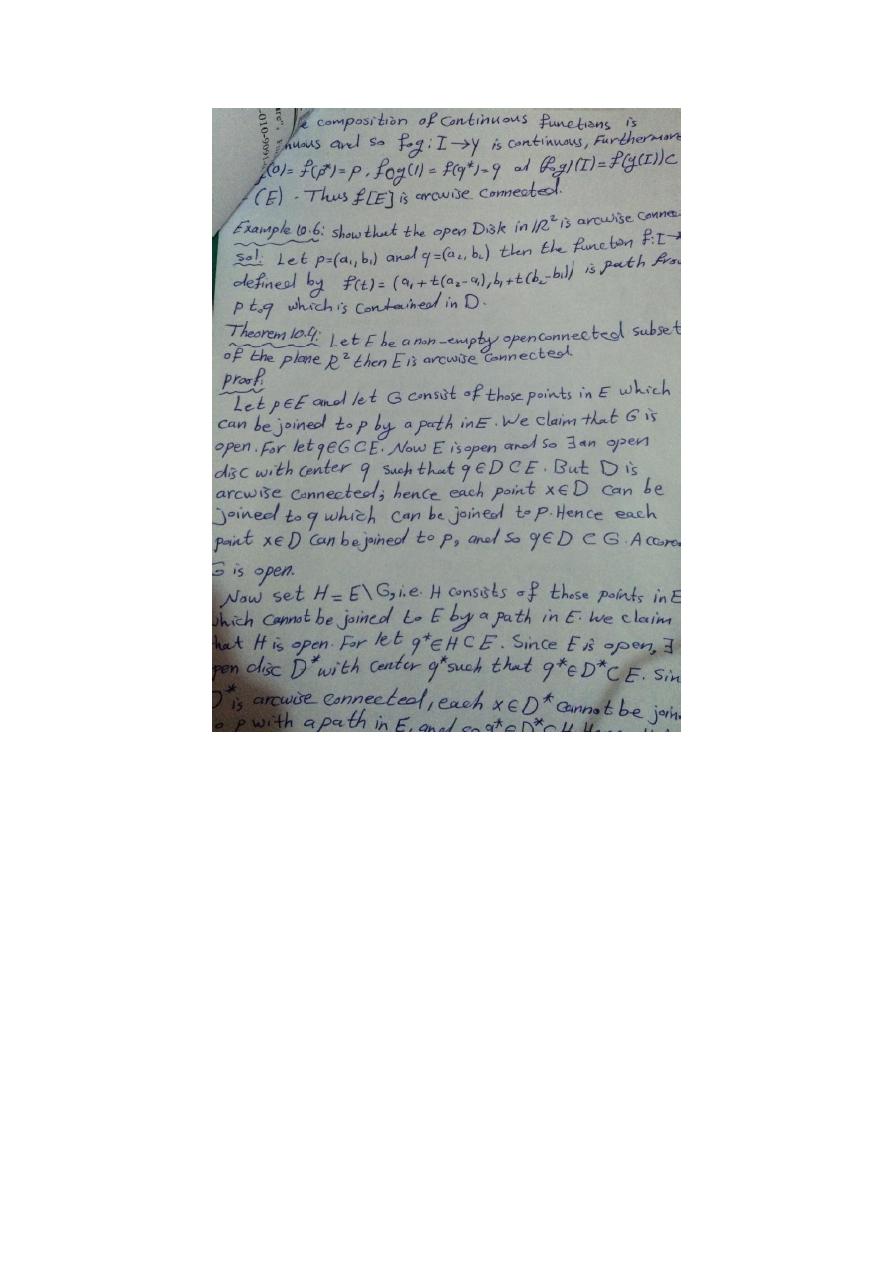 e composition of Continuous functions is
nuous and so fog: I→Y is continuous, Furthermore
(0)= f(p*)=p, fog(1) = f(q*)=q ad (fog)(I)=f(g(I))⊂
(E). Thus f[E] is arcwise connected.
Example 10.6: show that the open Disk in IR² is arcwise conne
Sol: Let p=(a₁,b₁) and q=(a₂,b₂) then the function f:I→
defined by f(t)= (a₁+t(a₂-a₁),b₁+t(b₂-b₁)) is path fro
p to q which is contained in D.
Theorem 10.4: Let E be a non-empty open connected subset
of the plane R² then E is arcwise connected
proof:
Let p∈E and let G consist of those points in E which
can be joined to p by a path in E. We claim that G is
open. For let q∈G⊂E. Now E is open and so ∃ an open
disc with center q such that q∈D⊂E. But D is
arcwise connected; hence each point x∈D can be
joined to q which can be joined to p. Hence each
point x∈D can be joined to p, and so q∈D⊂G. Accord
G is open.
Now set H=E\G, i.e. H consists of those points in E
which cannot be joined to E by a path in E. We claim
hat H is open. For let q*∈H⊂E. Since E is open, ∃
pen disc D* with center q* such that q*∈D*⊂E. Sin
D* is arcwise connected, each x∈D* cannot be join
o p with a path in E, and so q*∈D*⊂H.
010-909